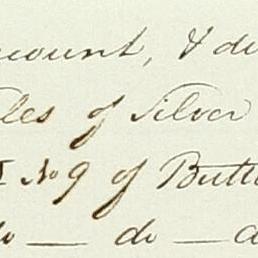 ccount, & du
les of Silver
No 9 of Butt
do — do — d